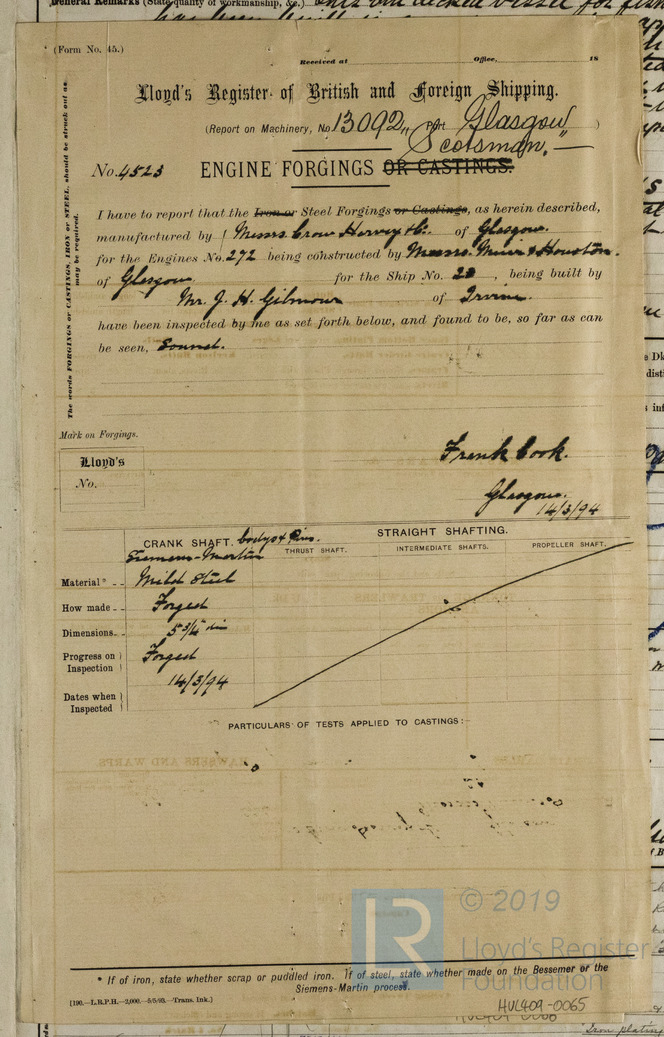 General Remarks (State quality of workmanship, &c.)
(Form No. 45.)
Received at Office, 18
Lloyd's Register of British and Foreign Shipping.
(Report on Machinery, No 13092, Port Glasgow)
"Scotsman."
No. 4523
ENGINE FORGINGS OR CASTINGS.
I have to report that the Iron or Steel Forgings or Castings, as herein described,
manufactured by Messrs Crow Harvey & Co. of Glasgow.
for the Engines No. 272 being constructed by Messrs. Muir & Houston.
of Glasgow for the Ship No. 22, being built by
Mr. J. H. Gilmour of Irvine.
have been inspected by me as set forth below, and found to be, so far as can
be seen, Sound.
The words FORGINGS or CASTINGS, IRON or STEEL, should be struck out as
may be required.
Mark on Forgings.
Lloyd's
No.
Frank Cook.
Glasgow.
14/3/94
CRANK SHAFT. bodys & Pins.
STRAIGHT SHAFTING.
THRUST SHAFT.
INTERMEDIATE SHAFTS.
PROPELLER SHAFT.
Siemens-Martin
Material* Mild Steel
How made Forged
Dimensions 5 3/4" dia
Progress on Inspection Forged
14/3/94
Dates when Inspected
PARTICULARS OF TESTS APPLIED TO CASTINGS:—
LR
© 2019
Lloyd's Register
Foundation
* If of iron, state whether scrap or puddled iron. If of steel, state whether made on the Bessemer or the
Siemens-Martin process.
[190.—L.R.P.H.—2,000.—5/5/93.—Trans. Ink.]
HUL409-0065
Iron plating